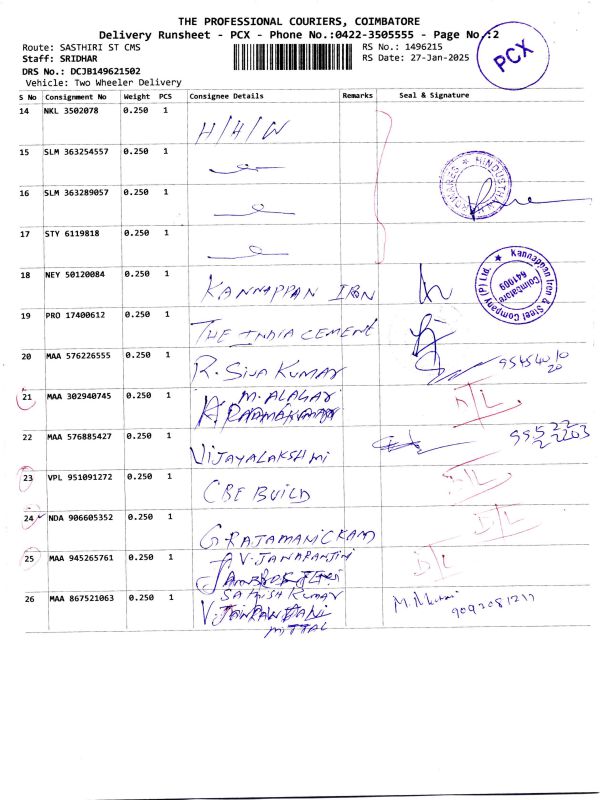 THE PROFESSIONAL COURIERS, COIMBATORE
Delivery Runsheet - PCX - Phone No.:0422-3505555 - Page No.:2
Route: SASTHIRI ST CMS RS No.: 1496215
Staff: SRIDHAR RS Date: 27-Jan-2025
DRS No.: DCJB149621502
Vehicle: Two Wheeler Delivery
PCX
S No Consignment No Weight PCS Consignee Details Remarks Seal & Signature
14 NKL 3502078 0.250 1 H/H/W
15 SLM 363254557 0.250 1
16 SLM 363289057 0.250 1
17 STY 6119818 0.250 1
18 NEY 50120084 0.250 1 KANNAPPAN IRON
Kannappan Iron & Steel Company (P) Ltd. Coimbatore 641009
19 PRO 17400612 0.250 1 THE INDIA CEMENT
20 MAA 576226555 0.250 1 R. SIVA KUMAR
21 MAA 302940745 0.250 1 M. ALAGAR D/L
22 MAA 576885427 0.250 1 VIJAYALAKSHMI 99522 22203
23 VPL 951091272 0.250 1 CBE BUILD D/L
24 NDA 906605352 0.250 1 G. RAJAMANICKAM D/L
25 MAA 945265761 0.250 1 A.V. JANARANJINI D/L
26 MAA 867521063 0.250 1 SATHISH KUMAR
MITTAL